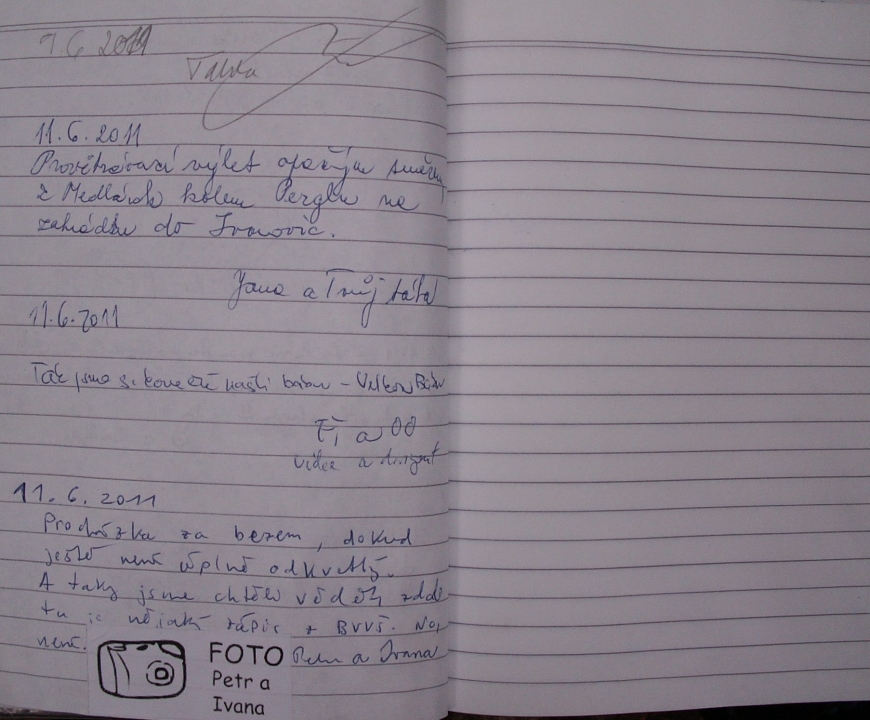 9.6.2011
11.6.2011
Provětrávací výlet opačným směrem
z Medlánek kolem Perglu na
zahrádku do Ivanovic.
Jana a Tvůj táta
11.6.2011
Tak jsme si konečně našli bobu -
Fi a
vůdce a
11. 6. 2011
Procházka za bezem, dokud
ještě není úplně odkvetlý.
A taky jsme chtěli vědět, zda
tu je nějaký zápis z BVVŠ. No,
není.
Petr a Ivana
FOTO
Petr a
Ivana